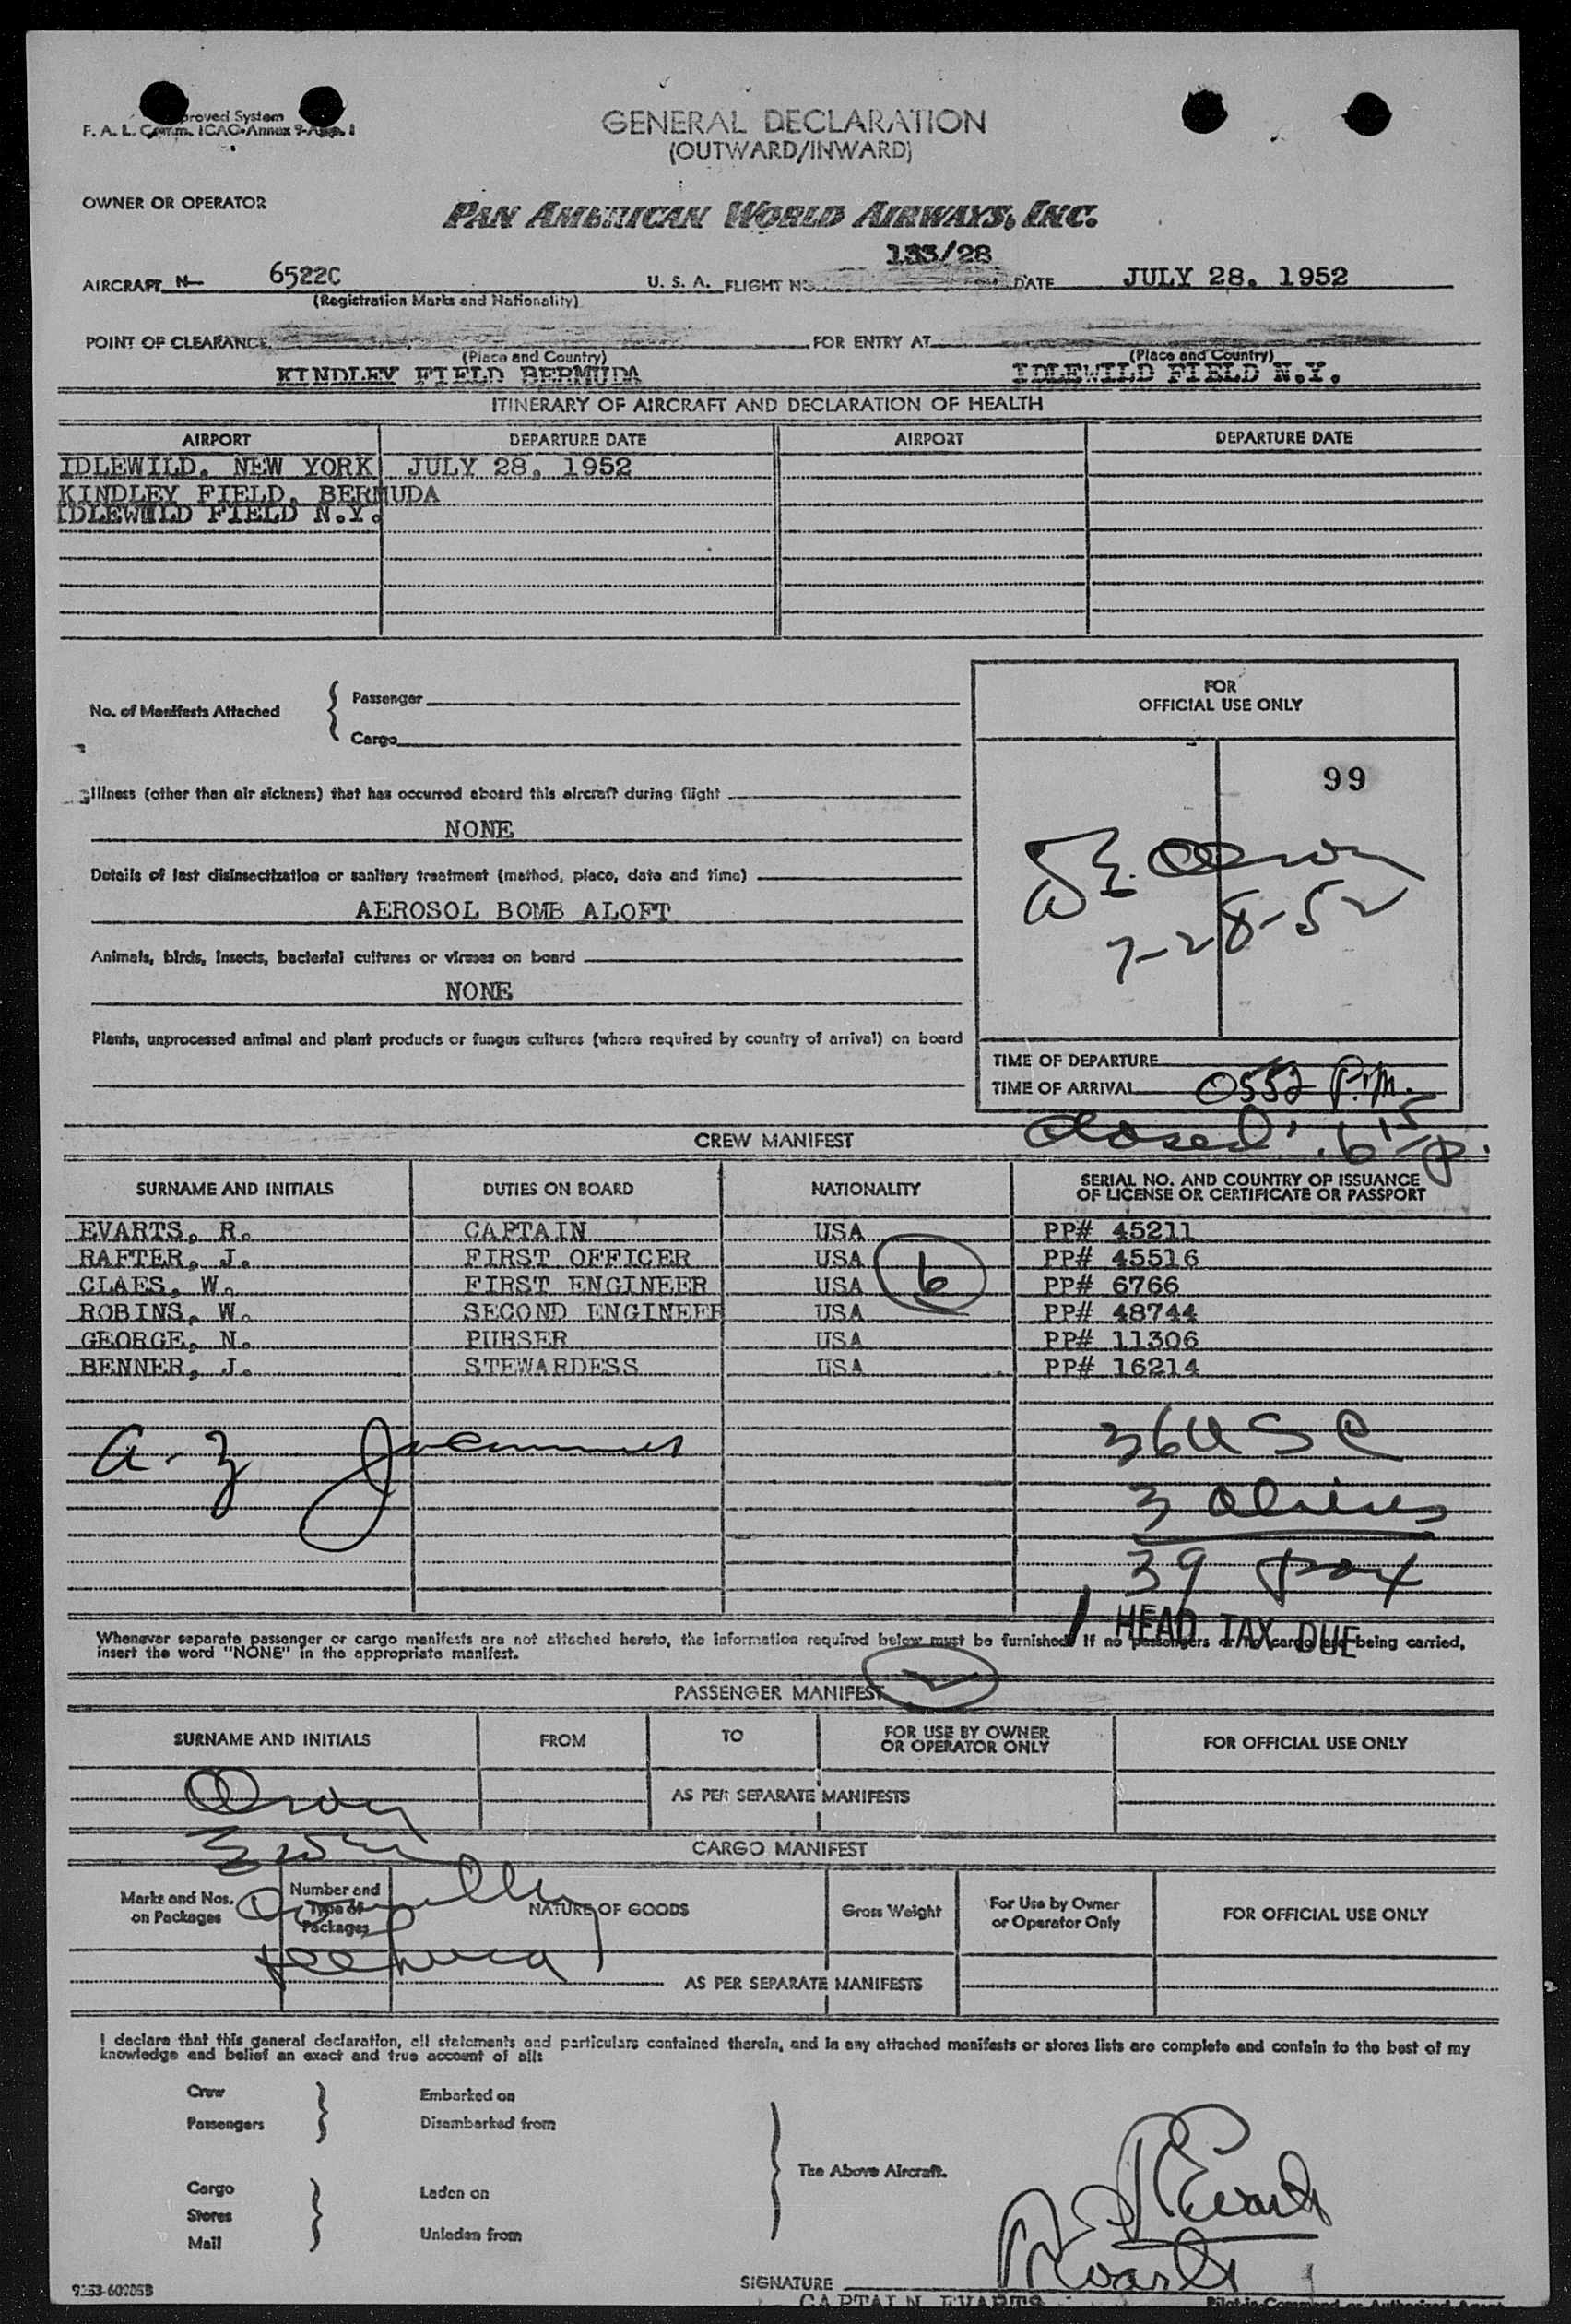 Approved System
F. A. L. Comm. ICAO-Annex 9-App. 1
GENERAL DECLARATION
(OUTWARD/INWARD)
OWNER OR OPERATOR
PAN AMERICAN WORLD AIRWAYS, INC.
135/28
AIRCRAFT N- 6522C U. S. A. FLIGHT NO. DATE JULY 28, 1952
(Registration Marks and Nationality)
POINT OF CLEARANCE FOR ENTRY AT
(Place and Country) (Place and Country)
KINDLEY FIELD BERMUDA IDLEWILD FIELD N.Y.
ITINERARY OF AIRCRAFT AND DECLARATION OF HEALTH
AIRPORT DEPARTURE DATE AIRPORT DEPARTURE DATE
IDLEWILD, NEW YORK JULY 28, 1952
KINDLEY FIELD, BERMUDA
IDLEWILD FIELD N.Y.
No. of Manifests Attached { Passenger
Cargo
FOR
OFFICIAL USE ONLY
99
Illness (other than air sickness) that has occurred aboard this aircraft during flight
NONE
Details of last disinsectization or sanitary treatment (method, place, date and time)
AEROSOL BOMB ALOFT
7-28-52
Animals, birds, insects, bacterial cultures or viruses on board
NONE
Plants, unprocessed animal and plant products or fungus cultures (where required by country of arrival) on board
TIME OF DEPARTURE
TIME OF ARRIVAL 0552 P.M.
closed 6 15 p.
CREW MANIFEST
SURNAME AND INITIALS DUTIES ON BOARD NATIONALITY SERIAL NO. AND COUNTRY OF ISSUANCE OF LICENSE OR CERTIFICATE OR PASSPORT
EVARTS, R. CAPTAIN USA PP# 45211
RAFTER, J. FIRST OFFICER USA PP# 45516
CLAES, W. FIRST ENGINEER USA 6 PP# 6766
ROBINS, W. SECOND ENGINEER USA PP# 48744
GEORGE, N. PURSER USA PP# 11306
BENNER, J. STEWARDESS USA PP# 16214
36 USC
3 aliens
39 pax
1 HEAD TAX DUE
Whenever separate passenger or cargo manifests are not attached hereto, the information required below must be furnished. If no passengers or no cargo are being carried,
insert the word "NONE" in the appropriate manifest.
PASSENGER MANIFEST
SURNAME AND INITIALS FROM TO FOR USE BY OWNER OR OPERATOR ONLY FOR OFFICIAL USE ONLY
AS PER SEPARATE MANIFESTS
CARGO MANIFEST
Marks and Nos. on Packages Number and Type of Packages NATURE OF GOODS Gross Weight For Use by Owner or Operator Only FOR OFFICIAL USE ONLY
AS PER SEPARATE MANIFESTS
I declare that this general declaration, all statements and particulars contained therein, and in any attached manifests or stores lists are complete and contain to the best of my
knowledge and belief an exact and true account of all:
Crew Embarked on
Passengers Disembarked from
The Above Aircraft.
Cargo Laden on
Stores
Mail Unladen from
R Evarts
R Evarts
SIGNATURE
CAPTAIN EVARTS Pilot-in-Command or Authorized Agent
9253-60205B